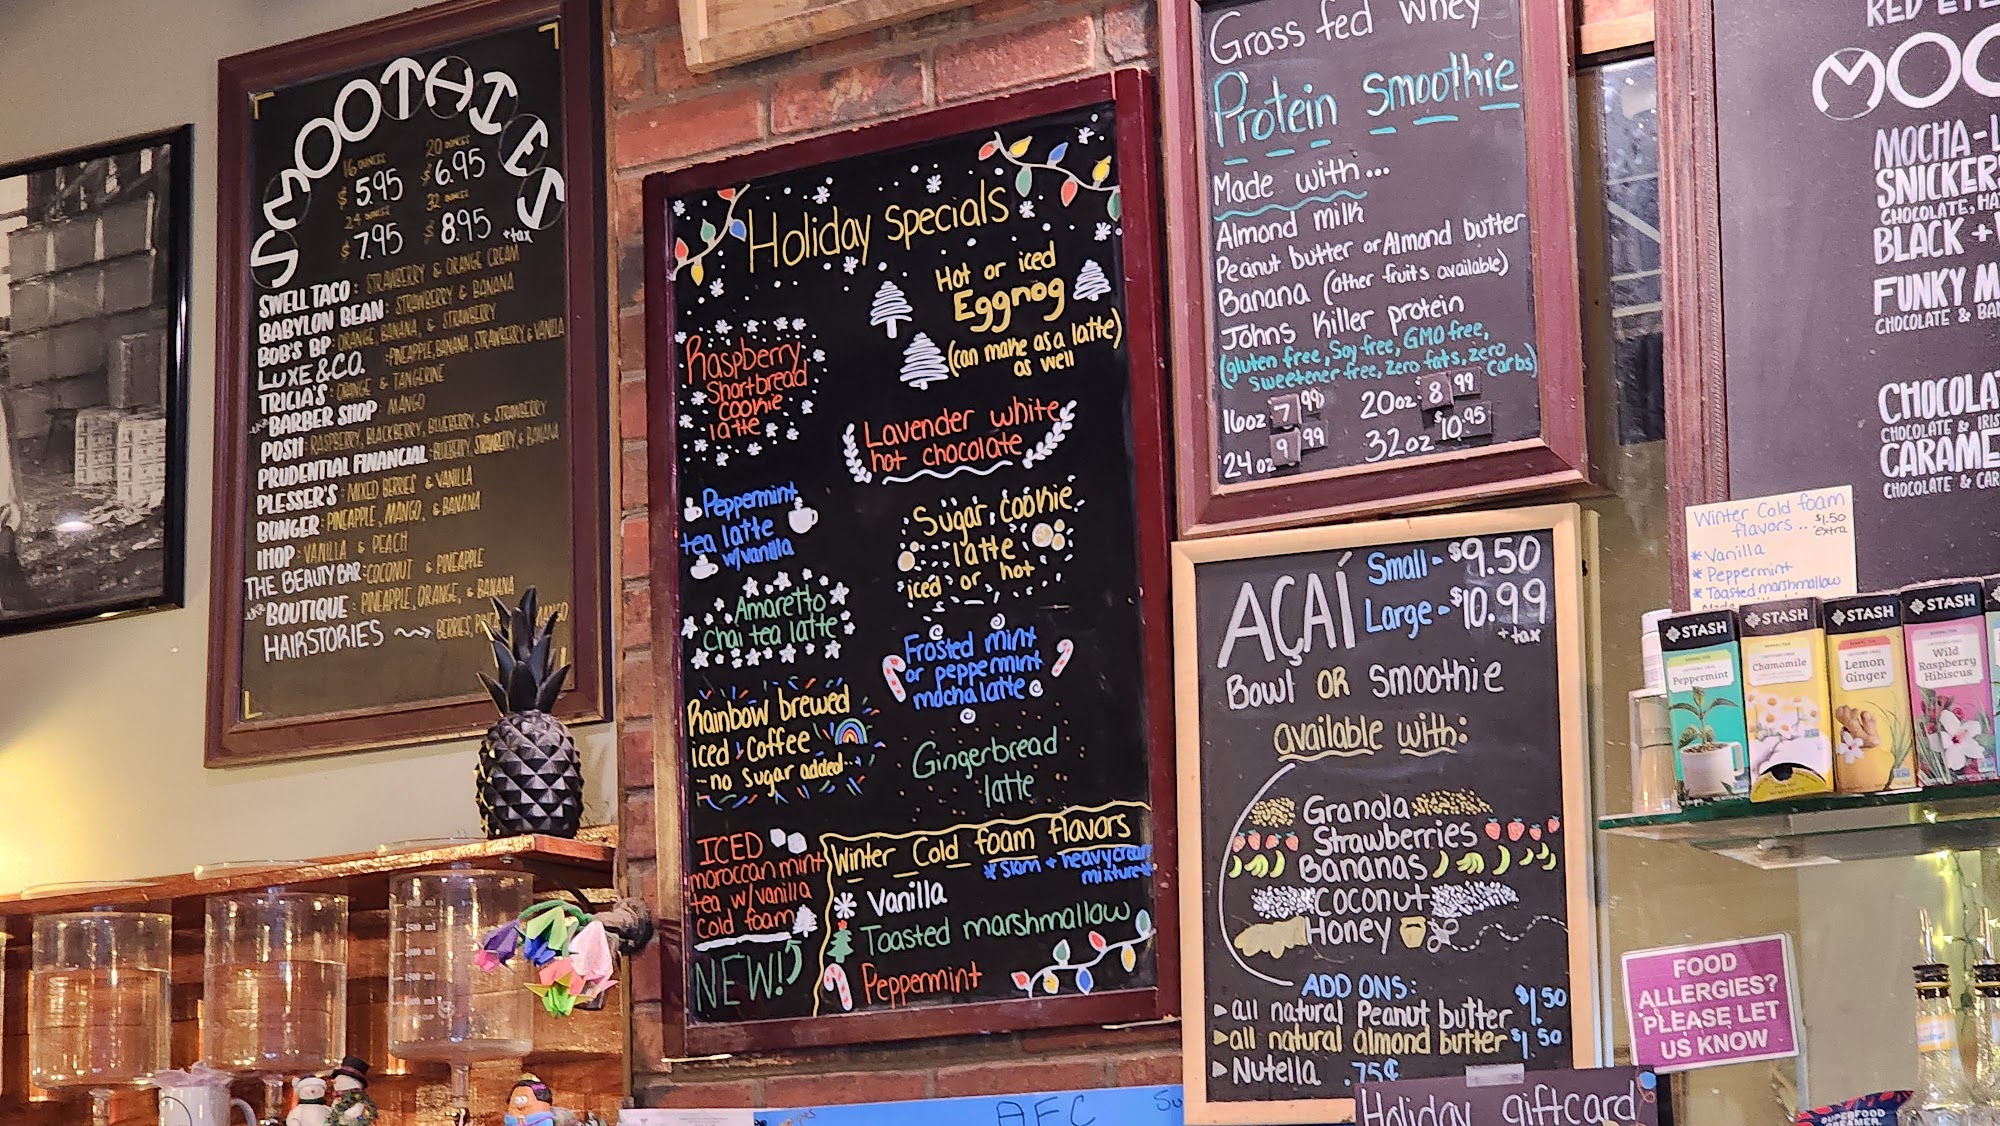 SMOOTHIES
16 OUNCES
$5.95
20 OUNCES
$6.95
24 OUNCES
$7.95
32 OUNCES
$8.95
+tax
SWELL TACO: STRAWBERRY & ORANGE CREAM
BABYLON BEAN: STRAWBERRY & BANANA
BOB'S BP: ORANGE, BANANA, & STRAWBERRY
LUXE & CO. :PINEAPPLE, BANANA, STRAWBERRY & VANILLA
TRICIA'S: ORANGE & TANGERINE
BARBER SHOP: MANGO
POSH: RASPBERRY, BLACKBERRY, BLUEBERRY, & STRAWBERRY
PRUDENTIAL FINANCIAL: BLUEBERRY, STRAWBERRY & BANANA
PLESSER'S: MIXED BERRIES & VANILLA
BUNGER: PINEAPPLE, MANGO, & BANANA
IHOP: VANILLA & PEACH
THE BEAUTY BAR: COCONUT & PINEAPPLE
BOUTIQUE: PINEAPPLE, ORANGE, & BANANA
HAIRSTORIES BERRIES,
Holiday Specials
Raspberry
Shortbread
cookie
latte
Peppermint
tea latte
w/vanilla
Amaretto
Chai tea latte
Rainbow brewed
iced coffee
-no sugar added-
ICED
moroccan mint
tea w/vanilla
Cold foam
NEW!
Hot or iced
Eggnog
(can make as a latte)
as well
Lavender white
hot chocolate
Sugar cookie
latte
iced or hot
Frosted mint
or peppermint
mocha latte
Gingerbread
latte
Winter Cold foam flavors
*skim + heavy cream
mixture*
Vanilla
Toasted marshmallow
Peppermint
Grass fed whey
Protein Smoothie
Made with...
Almond milk
Peanut butter or Almond butter
Banana (other fruits available)
Johns Killer protein
(gluten free, Soy free, GMO free,
sweetener free, zero fats, zero carbs)
16oz 7 99
20oz 8 99
24oz 9 99
32oz $10.95
AÇAÍ
Small - $9.50
Large - $10.99
+ tax
Bowl OR Smoothie
available with:
Granola
Strawberries
Bananas
Coconut
Honey
ADD ONS:
all natural Peanut butter $1.50
all natural almond butter $1.50
Nutella .75¢
Holiday giftcard
AFC
MOCHA-L
SNICKERS
BLACK +
FUNKY M
CHOCOLATE & BA
CHOCOLA
CHOCOLATE & IRIS
CARAME
CHOCOLATE & CAR
Winter Cold foam
flavors.. $1.50
extra
* Vanilla
* Peppermint
* Toasted marshmallow
STASH
Peppermint
STASH
Chamomile
STASH
Lemon
Ginger
STASH
Wild
Raspberry
Hibiscus
FOOD
ALLERGIES?
PLEASE LET
US KNOW
SUPERFOOD
CREAMER